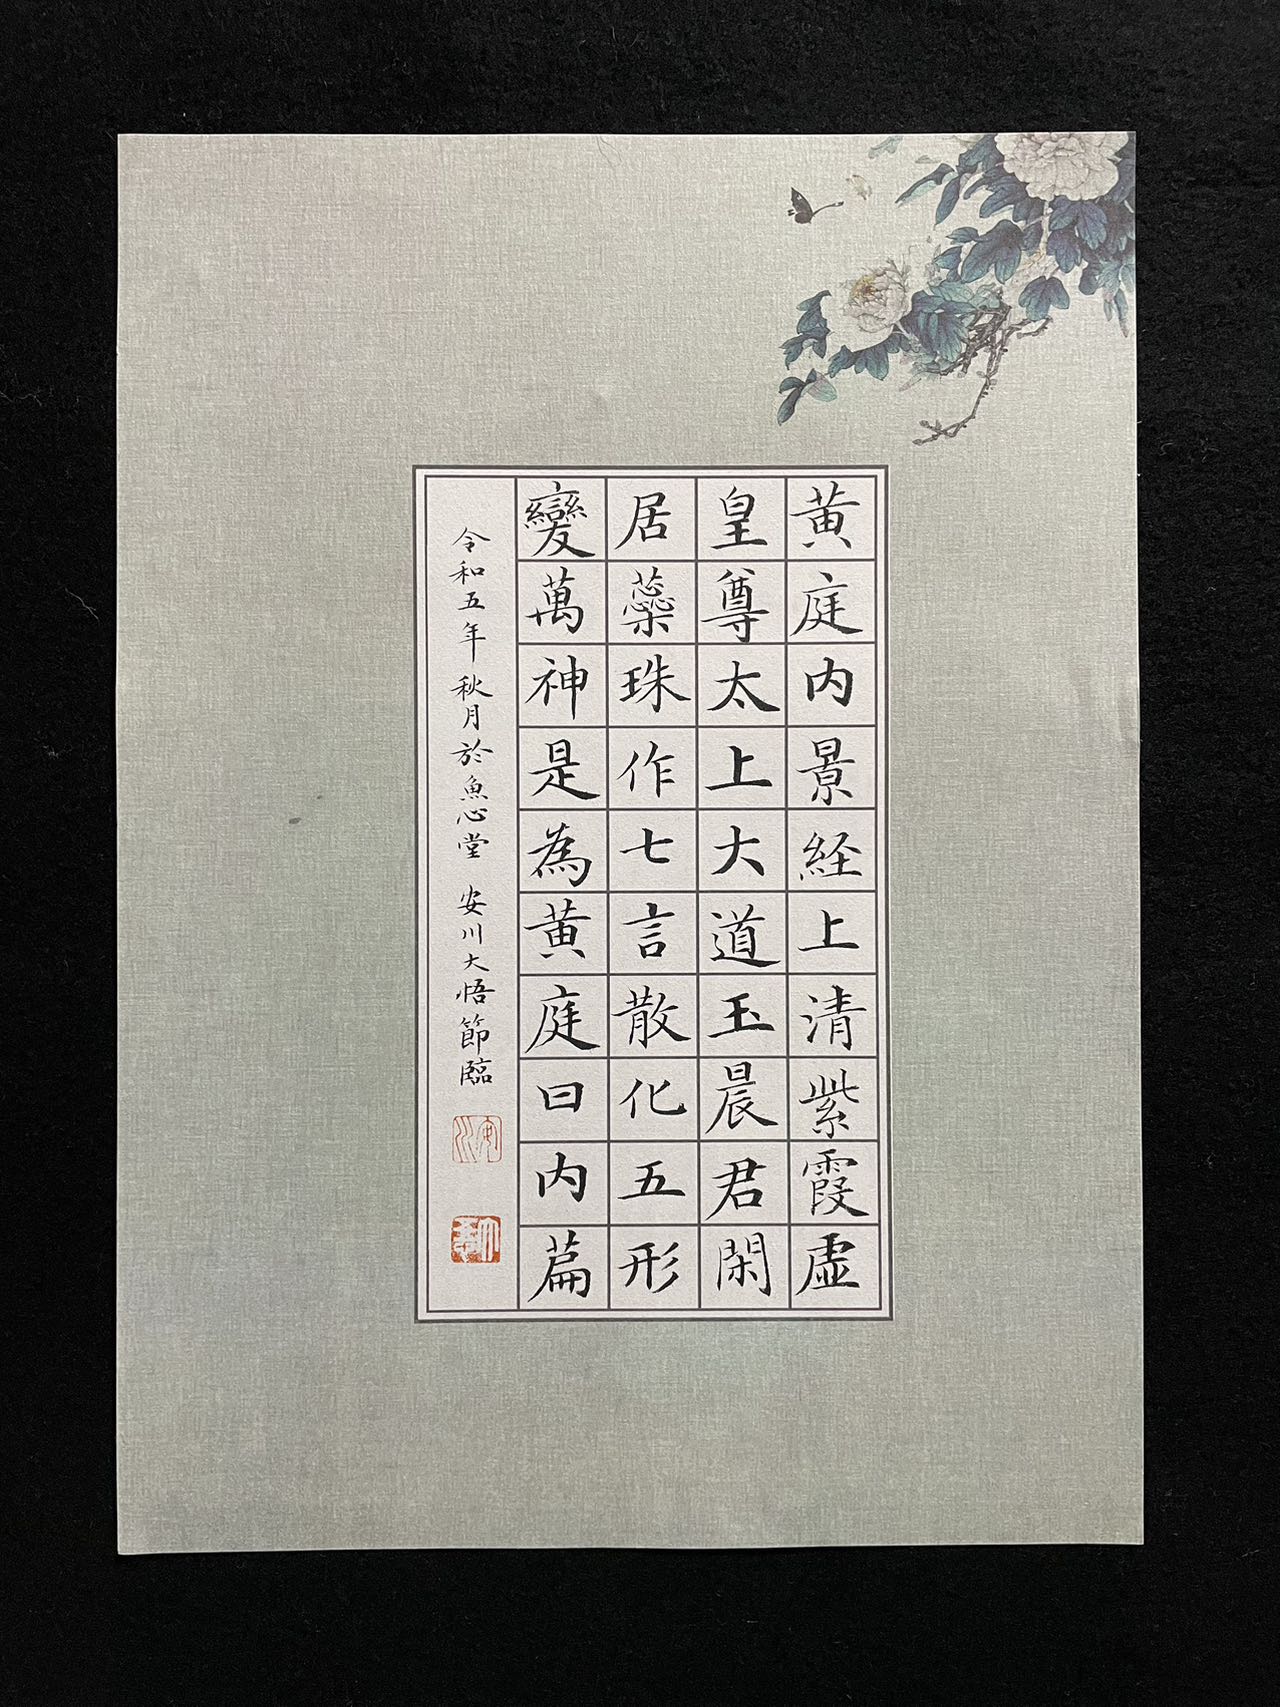 黄庭内景経上清紫霞虚
皇尊太上大道玉晨君閑
居蘂珠作七言散化五形
變萬神是為黄庭曰内篇
令和五年秋月於魚心堂 安川大悟節臨
安川
大悟